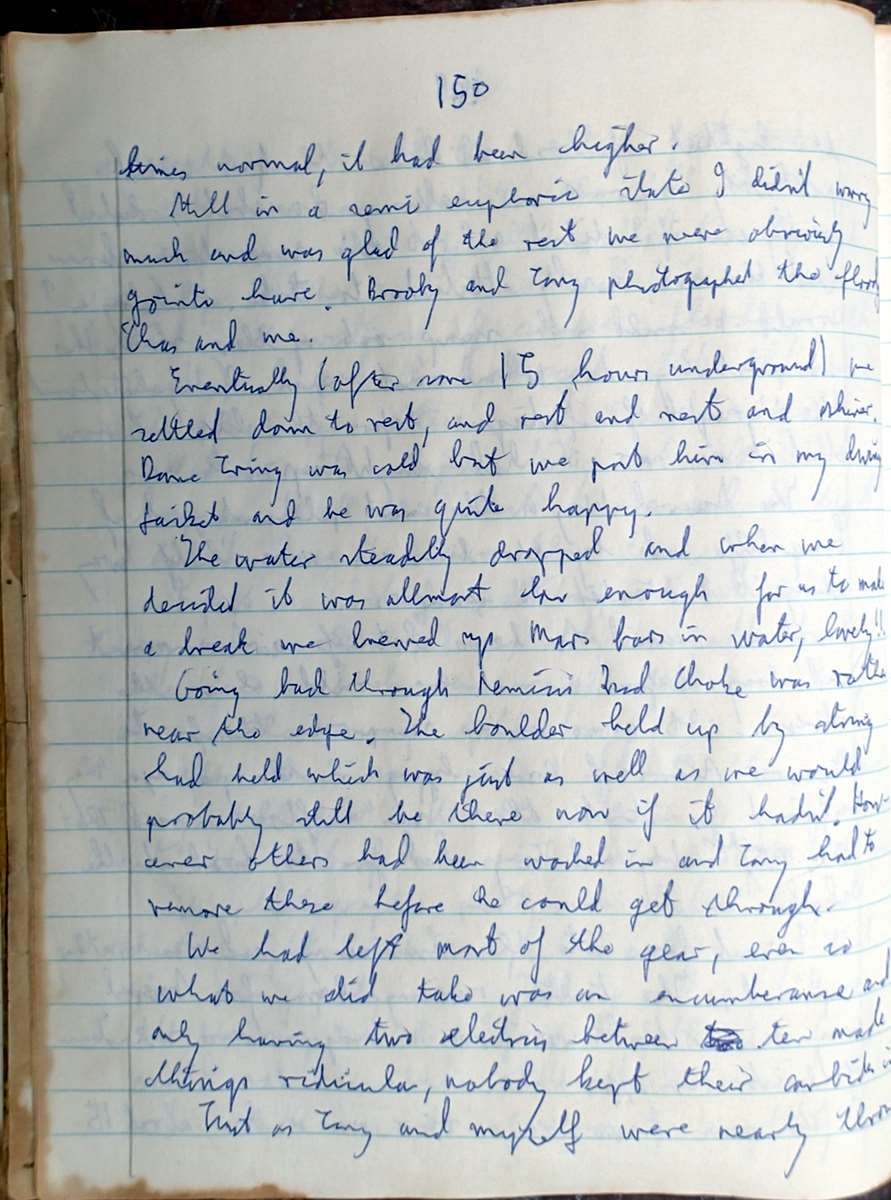 150
times normal, it had been higher.
Still in a semi euphoric state I didn't worry
much and was glad of the rest we were obviously
goint to have. Brooky and Tony photographed the
Chas and me.
Eventually (after some 15 hours underground) we
settled down to rest, and rest and rest and shiver.
Dave was cold but we put him in my diving
Jacket and he was quite happy.
The water steadily dropped and when we
decided it was allmost low enough for us to make
a break we brewed up Mars bars in water, lovely!!
Going back through Choke was rather
near the edge. The boulder held up by string
had held which was just as well as we would
probably still be there now if it hadn't. How-
ever others had been washed in and Tony had to
remove these before he could get through.
We had left most of the gear, even so
what we did take was an encumberance and
only having two electrics between ten made
things ridicular, nobody kept their
Just as Tony and myself were nearly